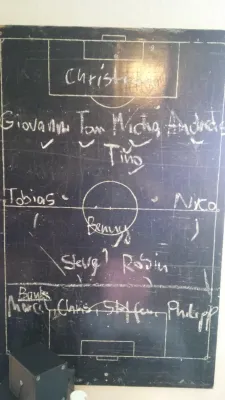 Christian
Giovanni Tom Micha Andreas
Tino
Tobias Nico
Benny
Robin
Bank:
Marcel, Chris, Steffen, Philipp